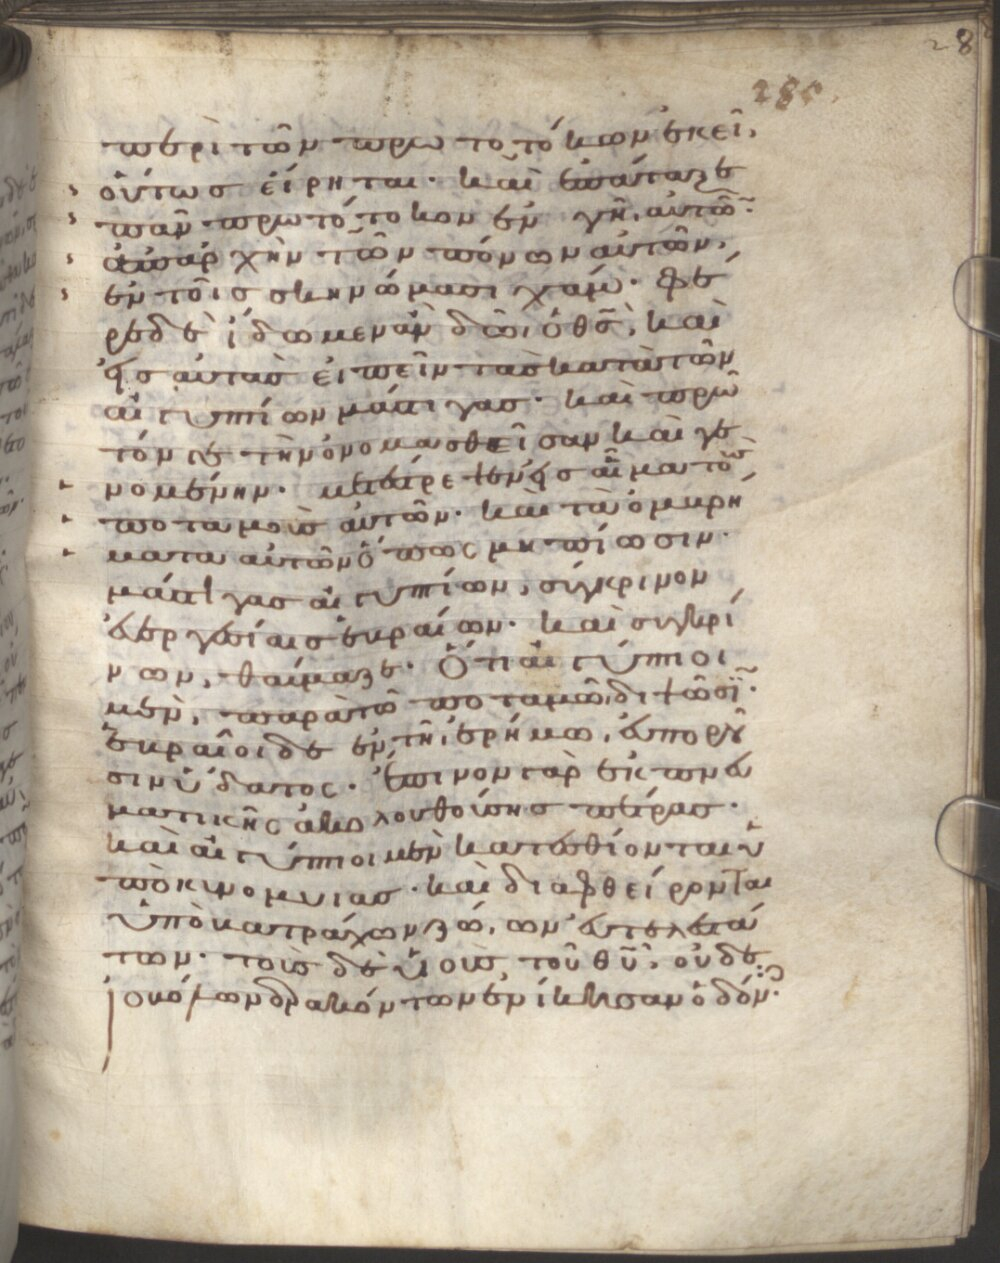 28
285
περὶ τῶν πρωτοτόκων ἐκεῖ,
οὕτως εἴρηται· καὶ ἐπάταξε
πᾶν πρωτότοκον ἐν γῆ, αὐτῶ̅ν·
ἀπαρχὴν τῶν πόνων αὐτῶν,
ἐν τοῖς σκηνώμασι χάμ· φέ
ρε δὲ ἴδωμεν ἂν δῶ, ὁ θς̅, καὶ
ἑξ αὐτὰς εἰπεῖν τὰς κατὰ τῶν
αἰγυπτίων μάστιγας· καὶ πρώ
τόν γε τὴν ὀνομασθεῖσαν καὶ γε
νομένην· μετέστρεψεν εἰς αἷμα τοὺς
ποταμοὺς αὐτῶν· καὶ τὰ ὀμβρή
ματα αὐτῶν ὅπως μὴ πίωσιν·
μάστιγας αἰγυπτίων, σύγκρινον
εὐεργεσίαις ἑβραίων· καὶ συγκρί
νων, θαύμαζε· Ὅτι αἰγύπτιοι
μὲν, παρὰ τῶ ποταμῶ, διψῶσϊ·
ἑβραῖοι δὲ ἐν τῆ ἐρήμω, εὐποροῦ
σιν ὕδατος· ἔπινον γὰρ ἐκ πνευ
ματικῆς ἀκολουθούσης πέτρας·
καὶ αἰγύπτιοι μὲν κατεσθίονται ὑ
πὸ κυνομυίας· καὶ διαφθείρονται
ὑπὸ βατράχων ζώων εὐτελεστά
των· τοὺς δὲ υἱοὺς τοῦ θυ̅, οὐδὲ
ἰοβόλων δρακόντων ἐνίκησαν ὀδόντ·